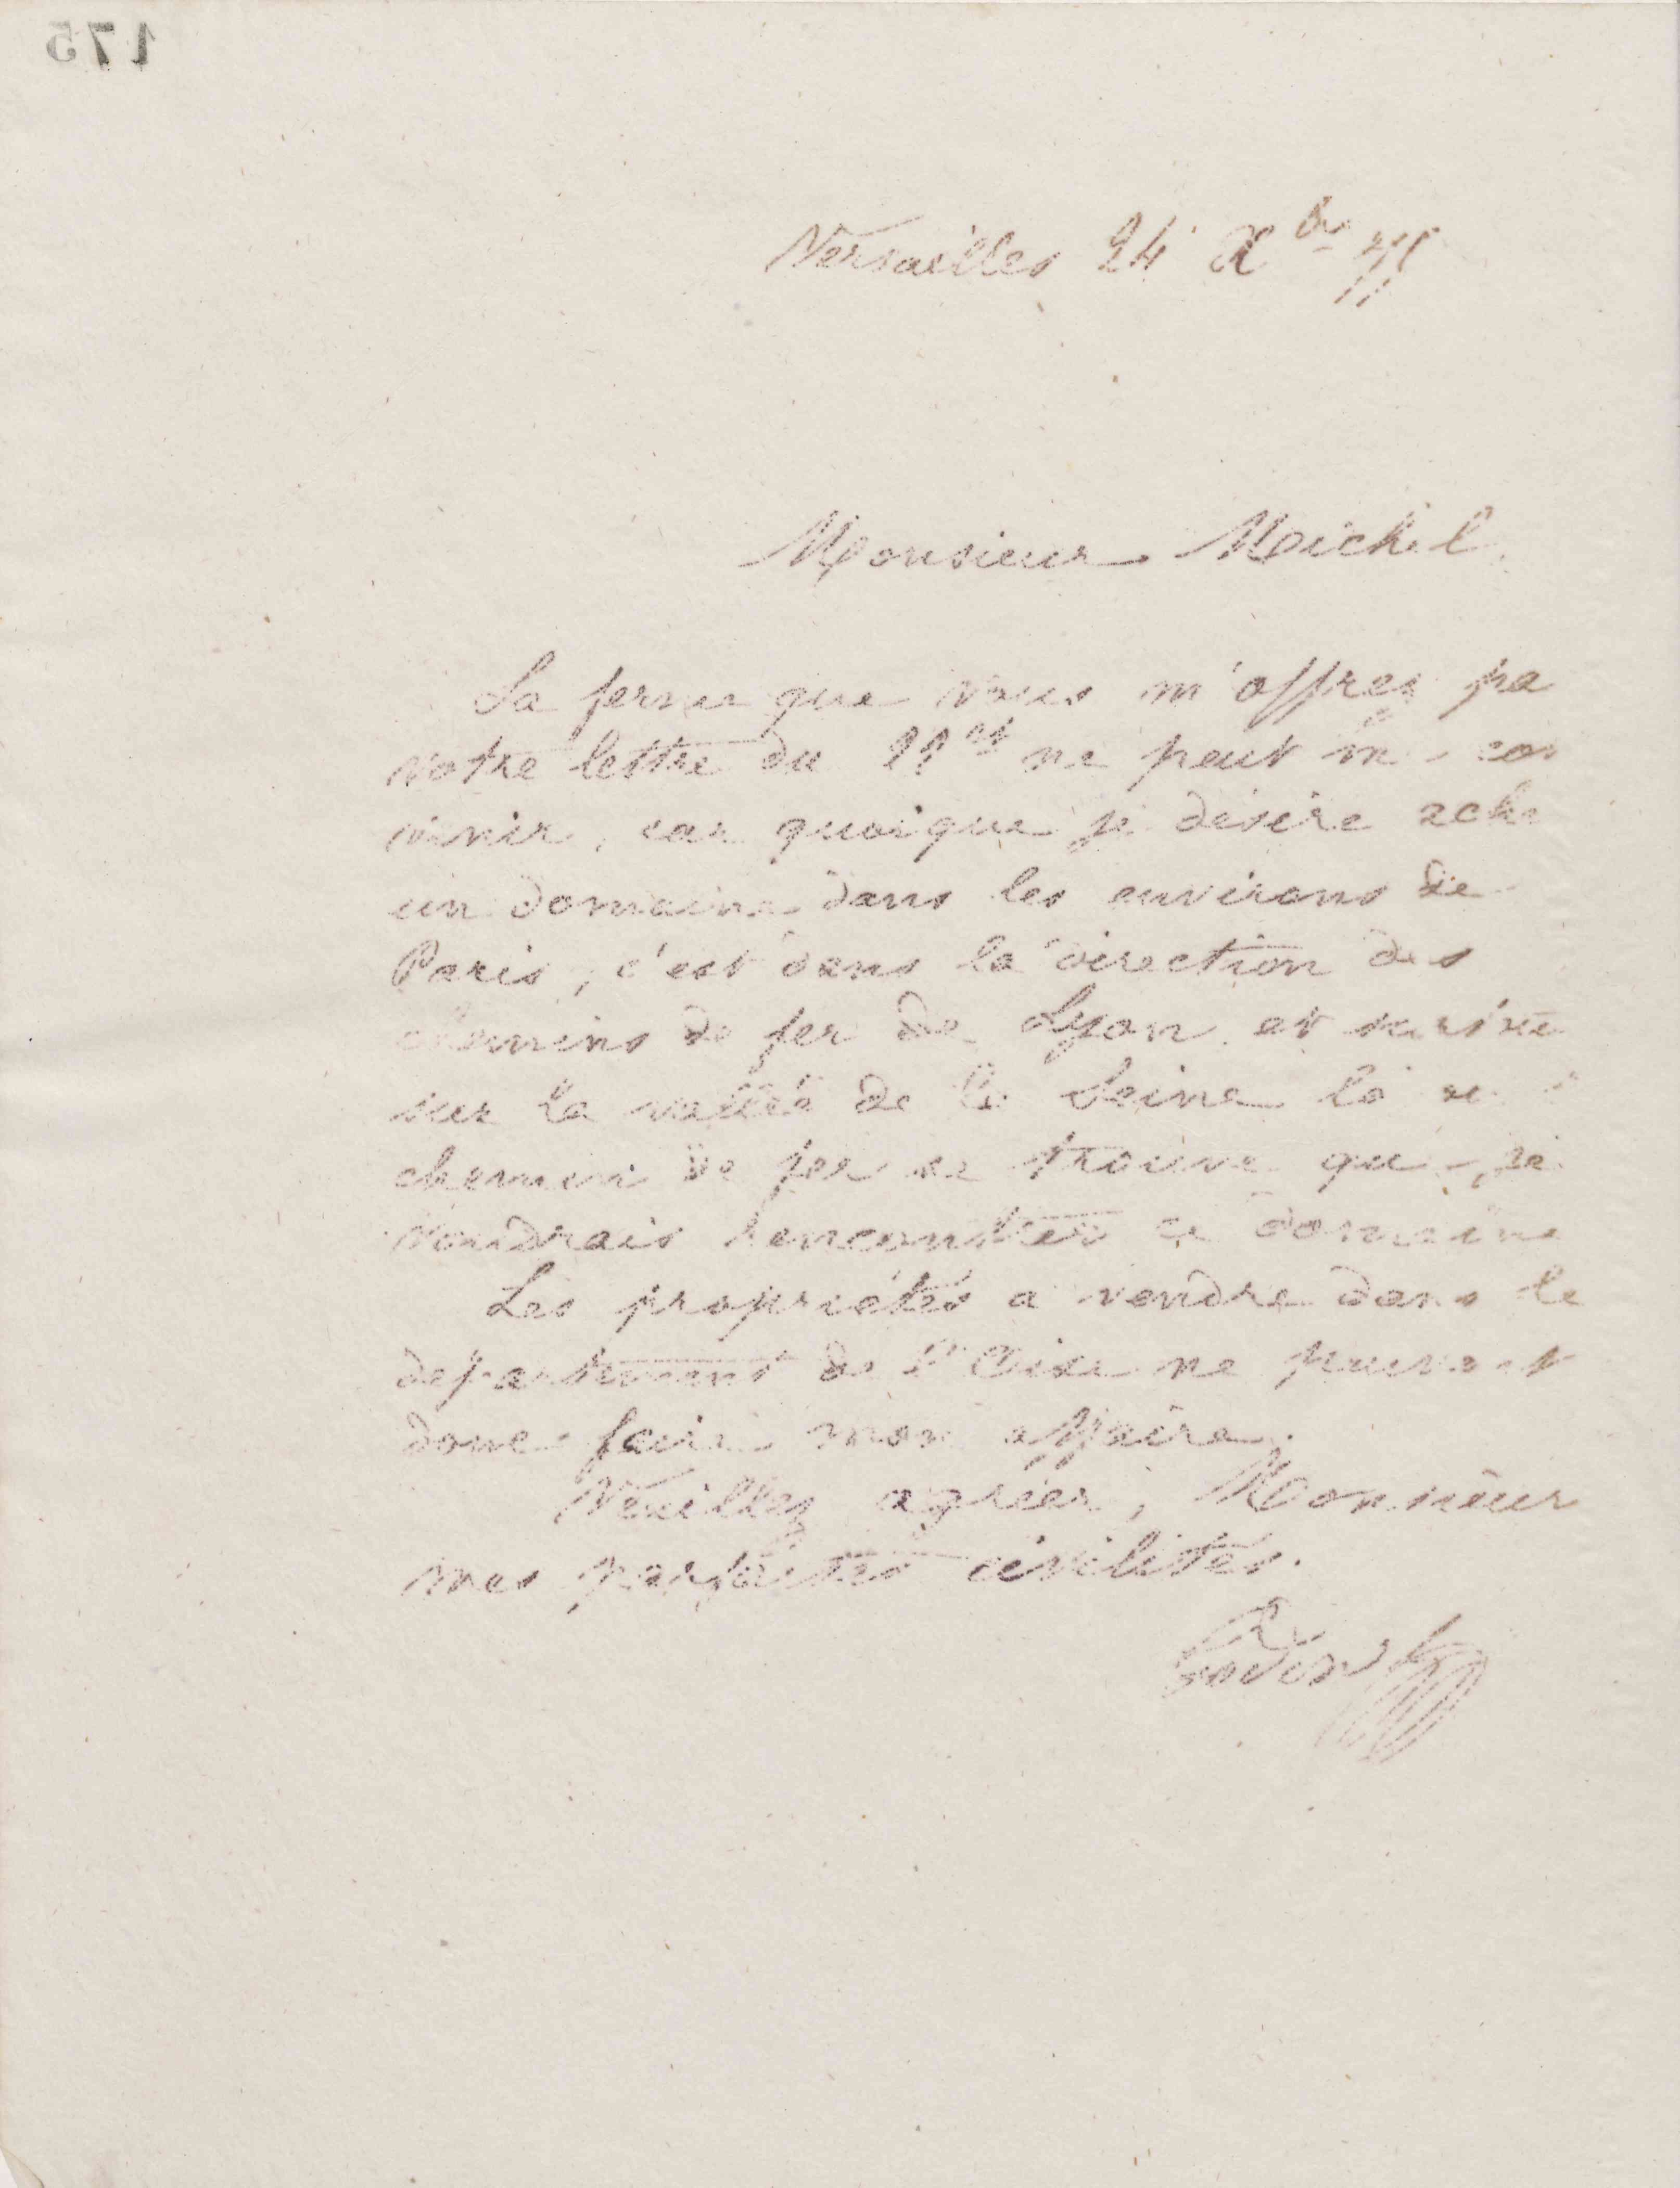 175
Versailles 24 Xbre
Monsieur Michel
La ferme que vous m'offrez pa
votre lettre du 21 ct ne peut me con
venir, car quoique je désire ache
un domaine dans les environs de
Paris, c'est dans la direction des
chemins de fer de Lyon et surtout
sur la vallée de la Seine là
chemin de fer se trouve que je
voudrais rencontrer ce domaine
Les propriétés a vendre dans le
département de l'Oise ne peuvent
donc faire mon affaire.
Veuillez agréer, Monsieur
mes parfaites civilités.
Godin